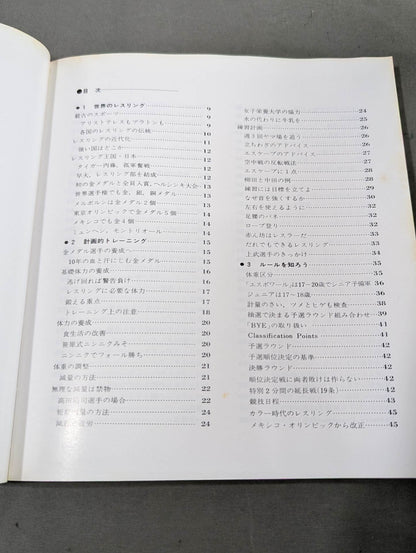 ●目 次
●1 世界のレスリング 9
最古のスポーツ 9
アリストテレスもプラトンも 9
各国のレスリングの伝統 10
レスリングの近代化 11
強い国はどこか 12
レスリング王国・日本 12
タイガー内藤、孤軍奮戦 12
早大、レスリング部を結成 12
初の金メダルと全員入賞、ヘルシンキ大会 12
世界選手権でも金、銀、銅メダル 13
メルボルンは金メダル2個 13
東京オリンピックで金メダル5個 13
メキシコでも金メダル4個 14
ミュンヘン、モントリオール 14
●2 計画的トレーニング 15
金メダル選手の養成へ 15
10年の血と汗にじむ金メダル 15
基礎体力の養成 16
逃げ回れば警告負け 16
レスリングに必要な体力 16
鍛える重点 17
トレーニング上の注意 18
体力の養成 20
食生活の改善 20
笹原式ニンニクみそ 20
ニンニクでフォール勝ち 20
体重の調整 21
減量の方法 21
無理な減量は禁物 22
選手の場合 22
減量の方法 22
24
女子栄養大学の協力 24
水の代わりに牛乳を 25
練習計画 26
週3回ヤマ場を造う 26
立ちわざのアドバイス 26
エスケープのアドバイス 27
空中戦の反転戦法 28
エスケープに1点 28
柳田と中田の例 28
練習には目標を立てよ 29
なぜ首を強くするか 30
左右を使えるように 31
足腰のバネ 31
ロープ登り 31
赤ん坊はレスラーだ 31
だれでもできるレスリング 31
上武選手のきっかけ 31
●3 ルールを知ろう 35
体重区分 35
「エスポワール」は17−20歳でシニア予備軍 36
ジュニアは17−18歳 36
計量のさい、ツメとヒゲも検査 38
抽選で決まる予選ラウンド組み合わせ 39
「BYE」の取り扱い 41
Classification Points 41
予選ラウンド 42
予選順位決定の基準 42
決勝ラウンド 42
順位決定戦に両者敗けは作らない 42
特別2分間の延長戦(19条) 42
競技日程 43
カラー時代のレスリング 44
メキシコ・オリンピックから改正 45